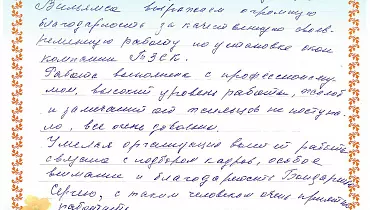 Вильямса выражаем огромную
благодарность за качественную свое-
временную работу по установке окон
компании ТЗСК.
Работа выполнена с профессионализ-
мом, высокий уровень работы, жалоб
и замечаний от жильцов не поступа-
ло, все очень довольны.
Умелая организация всей работы
связана с подбором кадров, особое
внимание и благодарность Бондарен
Сергею, с таким человеком очень приятно
работать